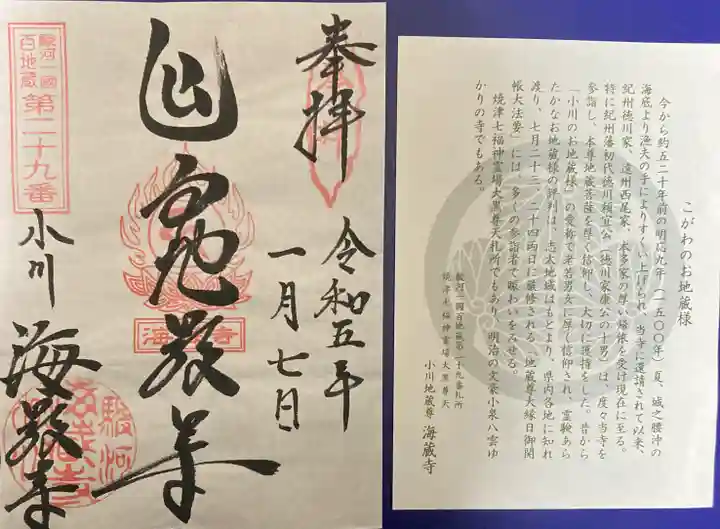 奉拝
令和五年
一月七日
駿河一國
百地蔵
第二十九番
小川
海蔵寺
こがわのお地蔵様
今から約五二十年前の明応九年(一五〇〇年)夏、城之腰沖の
海底より漁夫の手によりすくい上げられ、当寺に遷請されて以来、
紀州徳川家、遠州西尾家、本多家の厚い帰依を受け現在に至る。
特に紀州藩初代徳川頼宣公(徳川家康公の十男)は、度々当寺を
参詣し、本尊地蔵菩薩を厚く信仰し、大切に護持をした。昔から
「小川のお地蔵様」の愛称で老若男女に厚く信仰され、霊験あら
たかなお地蔵様の評判は、志太地域はもとより、県内各地に知れ
渡り、七月二十三、二十四両日に厳修される「地蔵尊大縁日御開
帳大法要」には、多くの参詣者で賑わいをみせる。
焼津七福神霊場大黒尊天札所でもあり、明治の文豪小泉八雲ゆ
かりの寺でもある。
駿河一国百地蔵第二十九番札所
焼津七福神霊場大黒尊天
小川地蔵尊 海蔵寺